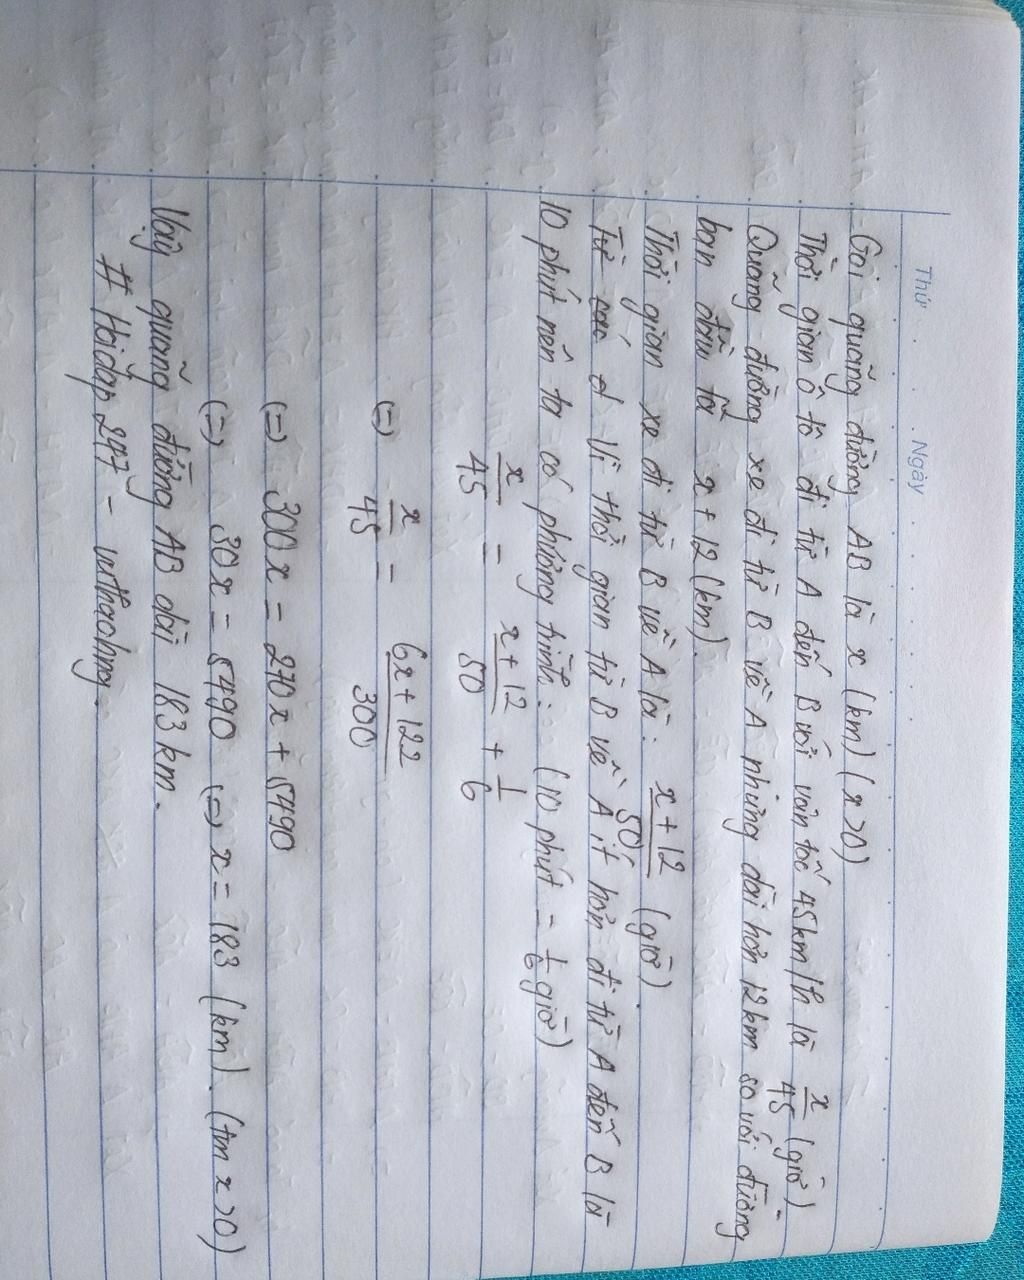 Thứ Ngày
Gọi quãng đường AB là x (km) (x>0)
Thời gian ô tô đi từ A đến B với vận tốc 45km/h là x/45 (giờ).
Quãng đường xe đi từ B về A nhưng dài hơn 12km so với đường
ban đầu là x+12 (km).
Thời gian xe đi từ B về A là: x+12/50 (giờ)
Vì thời gian từ B về A ít hơn đi từ A đến B là
10 phút nên ta có phương trình: (10 phút = 1/6 giờ)
x/45 = x+12/50 + 1/6
(=) x/45 = 6x+122/300
(=) 300x = 270x + 5490
(=) 30x = 5490 (=) x = 183 (km). (tm x>0)
Vậy quãng đường AB dài 183 km.
# Hoidap247 -